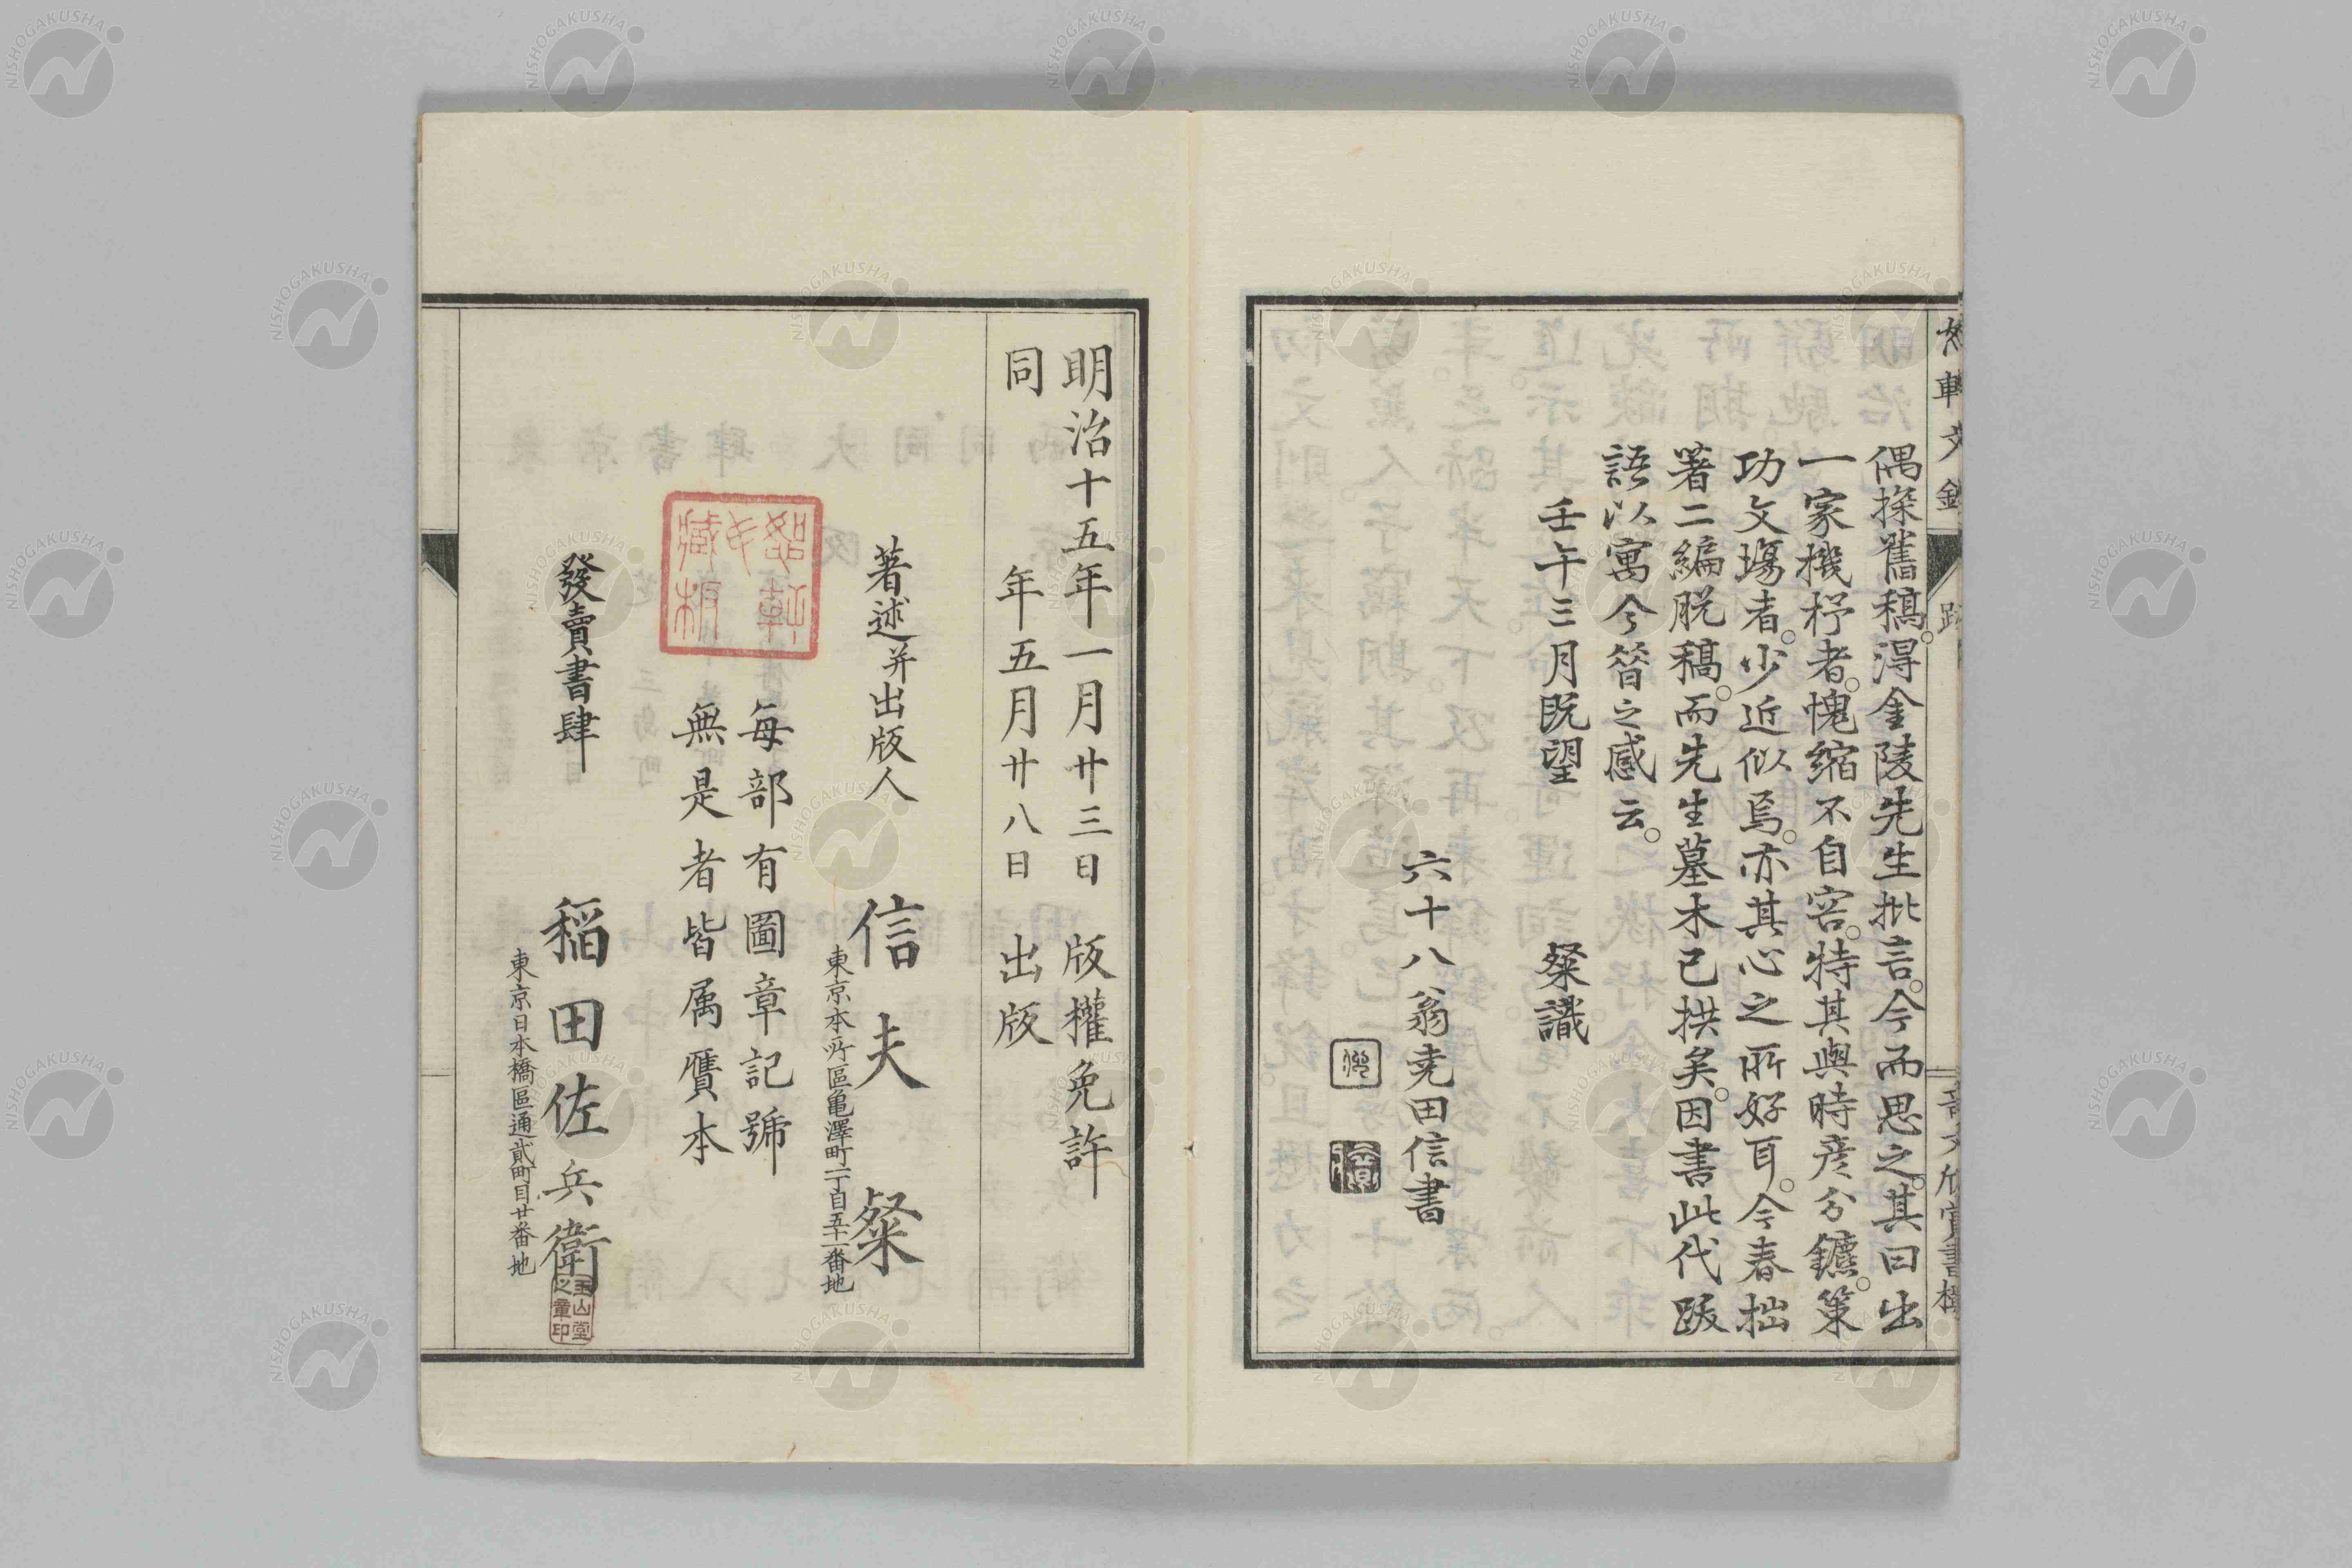 偶探舊稿。得金陵先生批言。今而思之。其曰出
一家機杼者。愧縮不自容。特其與時彦分鑣。策
功文場者。少近似焉。亦其心之所好耳。今春拙
著二編脱稿。而先生墓木已拱矣。因書此代跋
語以寓今昝之感云。
壬午三月既望 粲識
六十八翁尭田信書
明治十五年一月廿三日 版權免許
同 年五月廿八日 出版
著述并出版人 信夫粲
東京本所區亀澤町二丁目五十一番地
每部有圖章記號
無是者皆属贋本
恕軒
藏板
發賣書肆 稲田佐兵衛
東京日本橋區通貳町目廿番地
玉山堂
之章印
NISHOGAKUSHA